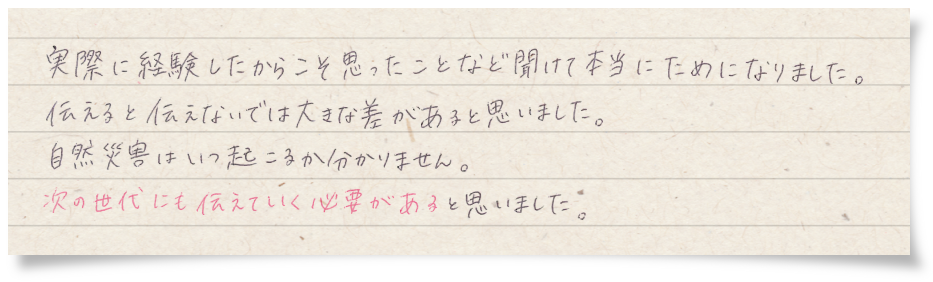 実際に経験したからこそ思ったことなど聞けて本当にためになりました。
伝えると伝えないでは大きな差があると思いました。
自然災害はいつ起こるか分かりません。
次の世代にも伝えていく必要があると思いました。